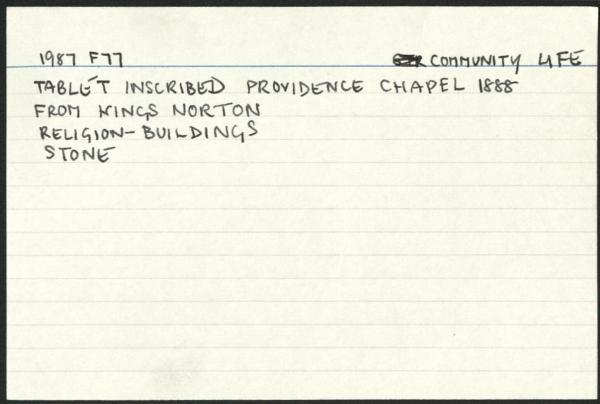 1987 F77 COMMUNITY LIFE
TABLET INSCRIBED PROVIDENCE CHAPEL 1888
FROM KINGS NORTON
RELIGION-BUILDINGS
STONE